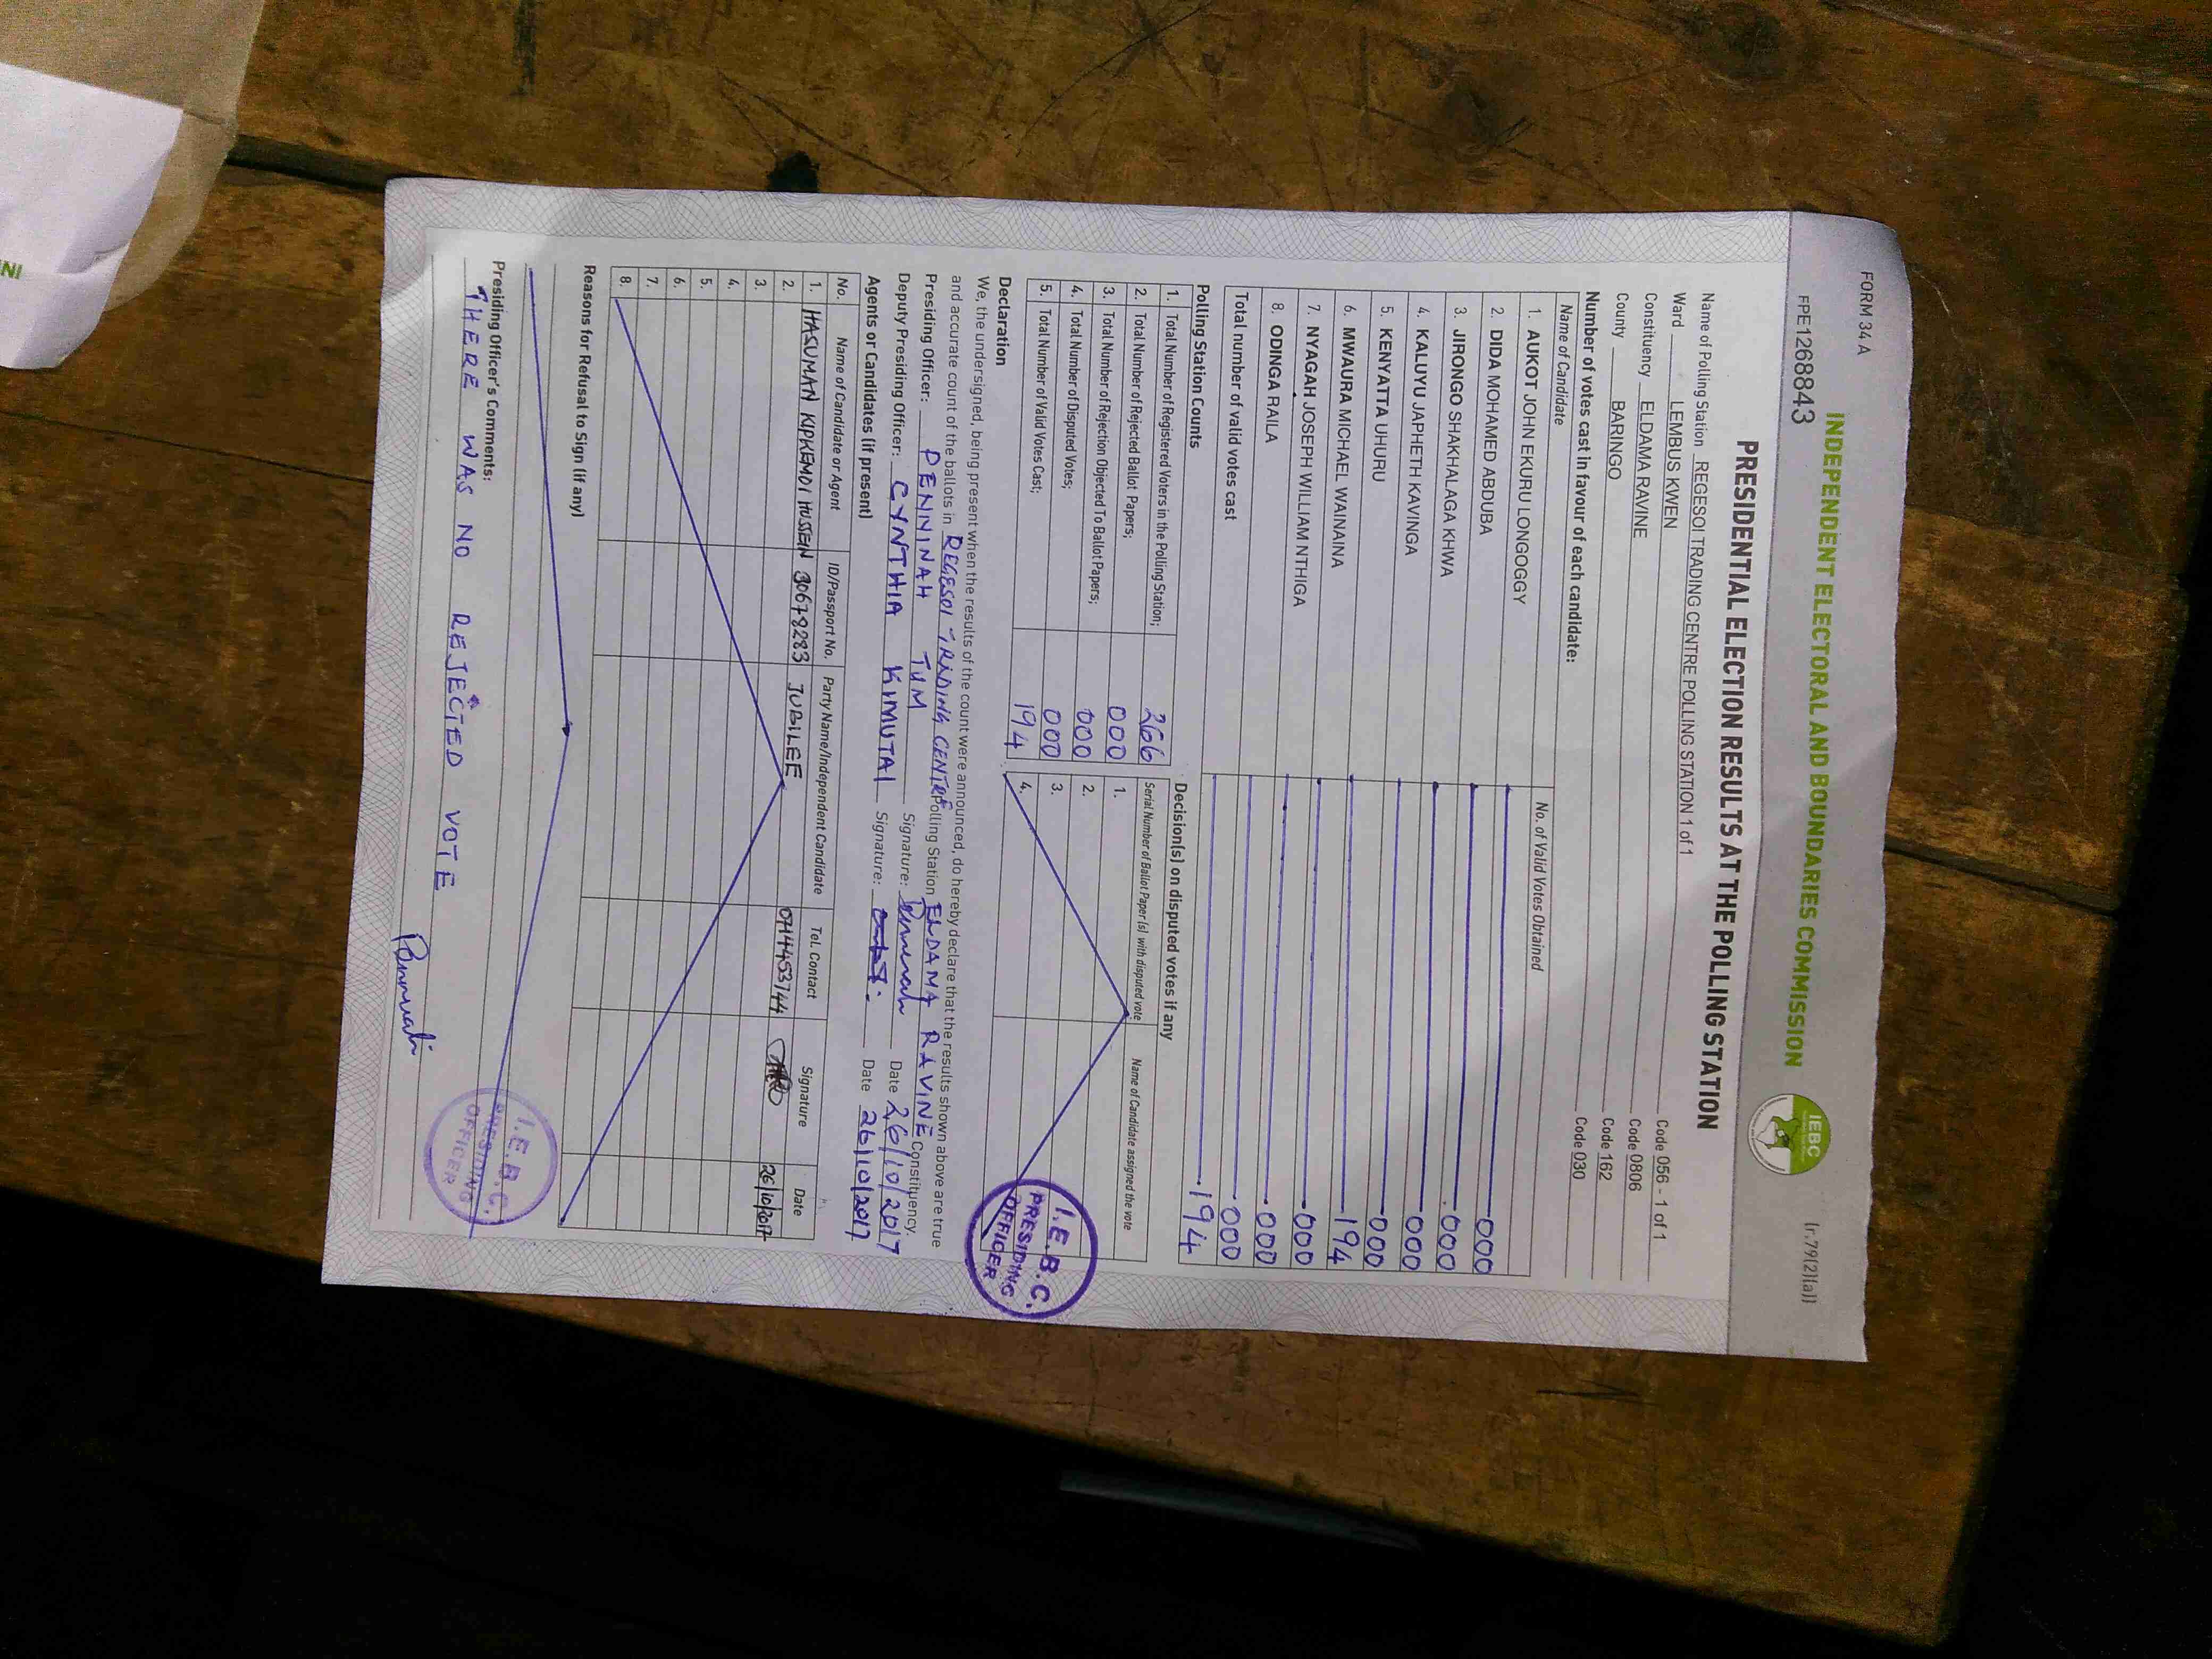 FORM 34 A
(r.79(2)(a))
FPE1268843
INDEPENDENT ELECTORAL AND BOUNDARIES COMMISSION
IEBC
PRESIDENTIAL ELECTION RESULTS AT THE POLLING STATION
Name of Polling Station REGESOI TRADING CENTRE POLLING STATION 1 of 1 Code 056 - 1 of 1
Ward LEMBUS KWEN Code 0806
Constituency ELDAMA RAVINE Code 162
County BARINGO Code 030
Number of votes cast in favour of each candidate:
Name of Candidate No. of Valid Votes Obtained
1. AUKOT JOHN EKURU LONGOGGY 000
2. DIDA MOHAMED ABDUBA 000
3. JIRONGO SHAKHALAGA KHWA 000
4. KALUYU JAPHETH KAVINGA 000
5. KENYATTA UHURU 194
6. MWAURA MICHAEL WAINAINA 000
7. NYAGAH JOSEPH WILLIAM NTHIGA 000
8. ODINGA RAILA 000
Total number of valid votes cast 194
Polling Station Counts
1. Total Number of Registered Voters in the Polling Station; 266
2. Total Number of Rejected Ballot Papers; 000
3. Total Number of Rejection Objected To Ballot Papers; 000
4. Total Number of Disputed Votes; 000
5. Total Number of Valid Votes Cast; 194
Decision(s) on disputed votes if any
Serial Number of Ballot Paper(s) with disputed vote Name of Candidate assigned the vote
1.
2.
3.
4.
I.E.B.C.
PRESIDING
OFFICER
Declaration
We, the undersigned, being present when the results of the count were announced, do hereby declare that the results shown above are true
and accurate count of the ballots in REGESOI TRADING CENTRE Polling Station ELDAMA RAVINE Constituency.
Presiding Officer: PENNINAH TUM Signature: Date 26/10/2017
Deputy Presiding Officer: CYNTHIA KIMUTAI Signature: Date 26/10/2017
Agents or Candidates (if present)
No. Name of Candidate or Agent ID/Passport No. Party Name/Independent Candidate Tel. Contact Signature Date
1. HASUMAN KIPKEMOI HUSSEIN 30678283 JUBILEE 0714453744 26/10/2017
2.
3.
4.
5.
6.
7.
8.
Reasons for Refusal to Sign (if any)
Presiding Officer's Comments:
THERE WAS NO REJECTED VOTE
I.E.B.C.
PRESIDING
OFFICER